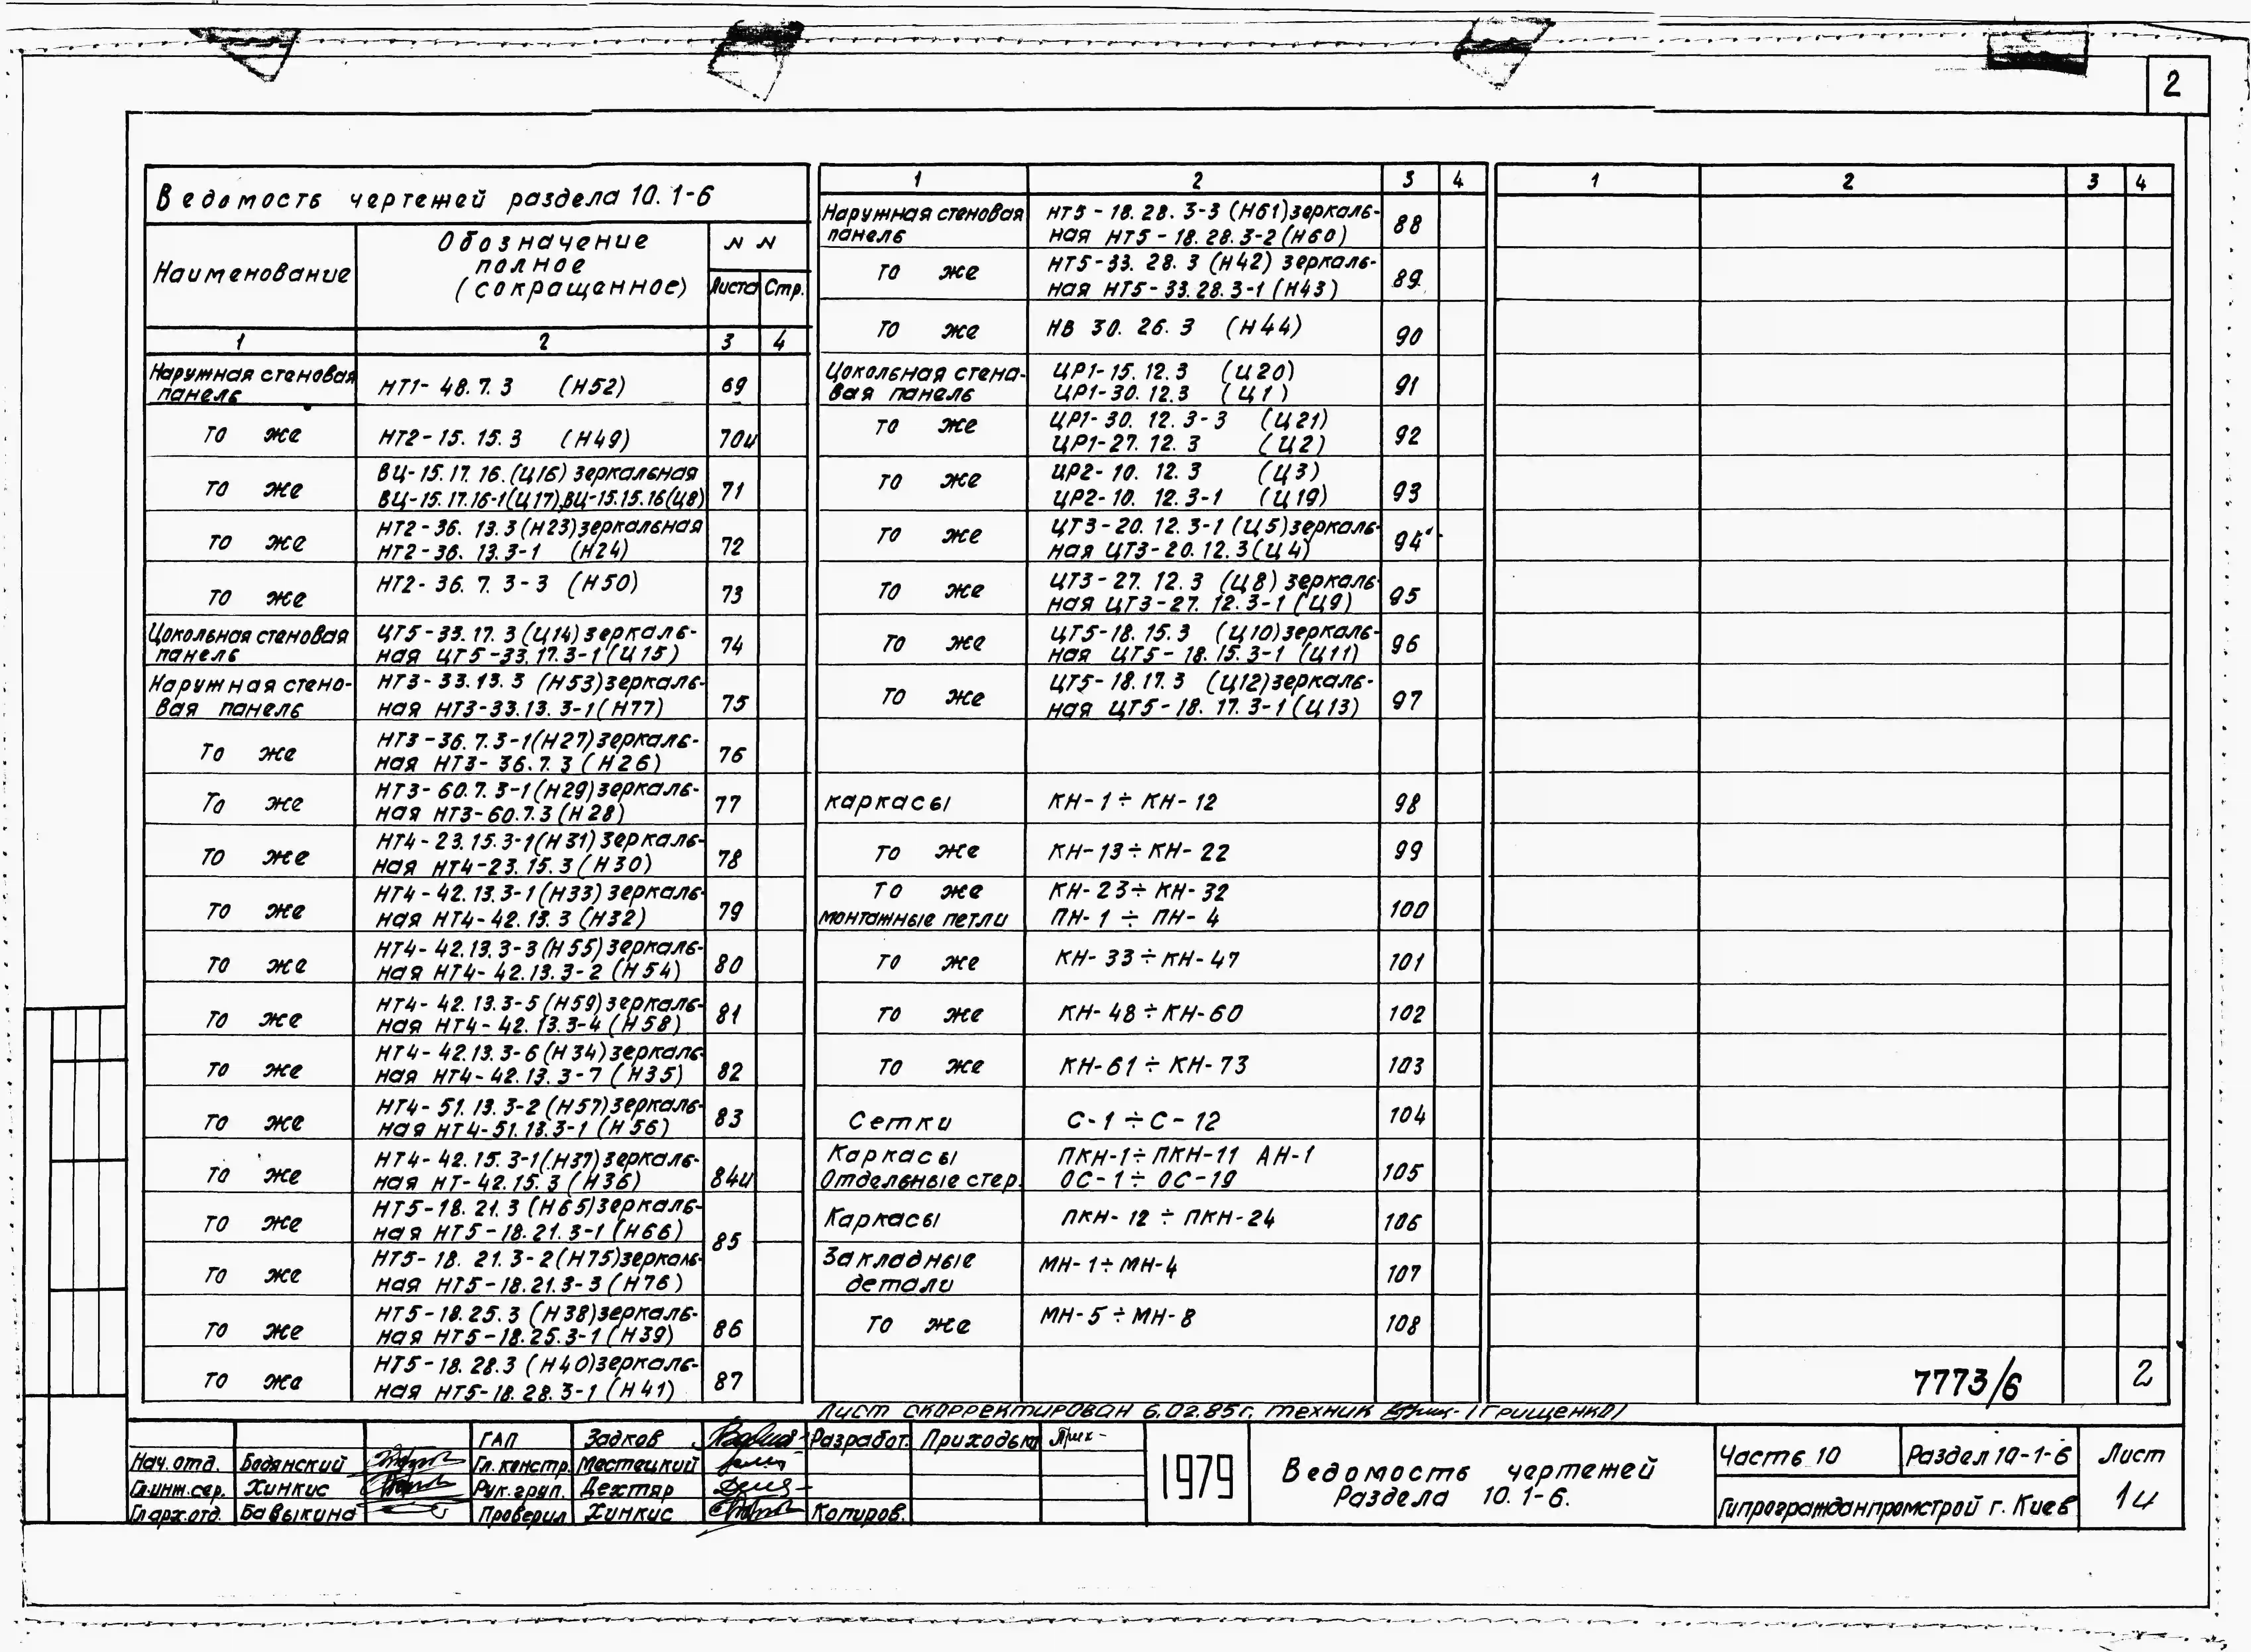 2
Ведомость чертежей раздела 10.1-6
Наименование
Обозначение
полное
(сокращенное)
N N
Листа Стр.
1 2 3 4
Наружная стеновая
панель
НТ1-48.7.3 (Н52) 69
то же НТ2-15.15.3 (Н49) 70и
то же
ВЦ-15.17.16.(Ц16) зеркальная
ВЦ-15.17.16-1(Ц17),ВЦ-15.15.16(Ц8) 71
то же
НТ2-36.13.3(Н23)зеркальная
НТ2-36.13.3-1 (Н24) 72
то же НТ2-36.7.3-3 (Н50) 73
Цокольная стеновая
панель
ЦТ5-33.17.3(Ц14)зеркаль-
ная ЦТ5-33.17.3-1(Ц15) 74
Наружная стено-
вая панель
НТ3-33.13.3 (Н53)зеркаль-
ная НТ3-33.13.3-1(Н77) 75
То же
НТ3-36.7.3-1(Н27)зеркаль-
ная НТ3-36.7.3 (Н26) 76
То же
НТ3-60.7.3-1(Н29)зеркаль-
ная НТ3-60.7.3(Н28) 77
то же
НТ4-23.15.3-1(Н31)зеркаль-
ная НТ4-23.15.3(Н30) 78
то же
НТ4-42.13.3-1(Н33)зеркаль-
ная НТ4-42.13.3 (Н32) 79
то же
НТ4-42.13.3-3(Н55)зеркаль-
ная НТ4-42.13.3-2 (Н54) 80
то же
НТ4-42.13.3-5(Н59)зеркаль-
ная НТ4-42.13.3-4(Н58) 81
то же
НТ4-42.13.3-6(Н34)зеркаль-
ная НТ4-42.13.3-7 (Н35) 82
то же
НТ4-51.13.3-2(Н57)зеркаль-
ная НТ4-51.13.3-1 (Н56) 83
то же
НТ4-42.15.3-1(Н37)зеркаль-
ная НТ-42.15.3 (Н36) 84и
то же
НТ5-18.21.3 (Н65)зеркаль-
ная НТ5-18.21.3-1 (Н66)
85
то же
НТ5-18.21.3-2(Н75)зеркаль-
ная НТ5-18.21.3-3 (Н76)
то же
НТ5-18.25.3 (Н38)зеркаль-
ная НТ5-18.25.3-1(Н39) 86
то же
НТ5-18.28.3 (Н40)зеркаль-
ная НТ5-18.28.3-1 (Н41) 87
1 2 3 4
Наружная стеновая
панель
НТ5-18.28.3-3 (Н61)зеркаль-
ная НТ5-18.28.3-2(Н60) 88
то же
НТ5-33.28.3 (Н42) зеркаль-
ная НТ5-33.28.3-1 (Н43) 89
то же НВ 30.26.3 (Н44) 90
Цокольная стено-
вая панель
ЦР1-15.12.3 (Ц20)
ЦР1-30.12.3 (Ц1) 91
то же
ЦР1-30.12.3-3 (Ц21)
ЦР1-27.12.3 (Ц2) 92
то же
ЦР2-10.12.3 (Ц3)
ЦР2-10.12.3-1 (Ц19) 93
то же
ЦТ3-20.12.3-1 (Ц5)зеркаль-
ная ЦТ3-20.12.3(Ц4) 94
то же
ЦТ3-27.12.3 (Ц8) зеркаль-
ная ЦТ3-27.12.3-1 (Ц9) 95
то же
ЦТ5-18.15.3 (Ц10)зеркаль-
ная ЦТ5-18.15.3-1 (Ц11) 96
то же
ЦТ5-18.17.3 (Ц12)зеркаль-
ная ЦТ5-18.17.3-1(Ц13) 97
каркасы КН-1÷КН-12 98
то же КН-13÷КН-22 99
то же КН-23÷КН-32
монтажные петли ПН-1÷ПН-4 100
то же КН-33÷КН-47 101
то же КН-48÷КН-60 102
то же КН-61÷КН-73 103
Сетки С-1÷С-12 104
Каркасы ПКН-1÷ПКН-11 АН-1
Отдельные стер. ОС-1÷ОС-19 105
Каркасы ПКН-12÷ПКН-24 106
Закладные
детали
МН-1÷МН-4 107
то же МН-5÷МН-8 108
1 2 3 4
7773/6 2
Лист скорректирован 6.02.85г. техник (Грищенко)
ГАП Задков Разработ. Приходько
Нач.отд. Бодянский Гл.констр. Мостецкий
Гл.инж.сер. Хинкис Рук.груп. Дехтяр
Гл.арх.отд. Бавыкина Проверил Хинкис Копиров.
1979
Ведомость чертежей
Раздела 10.1-6.
Часть 10 Раздел 10-1-6 Лист
Гипрогражданпромстрой г. Киев 1и